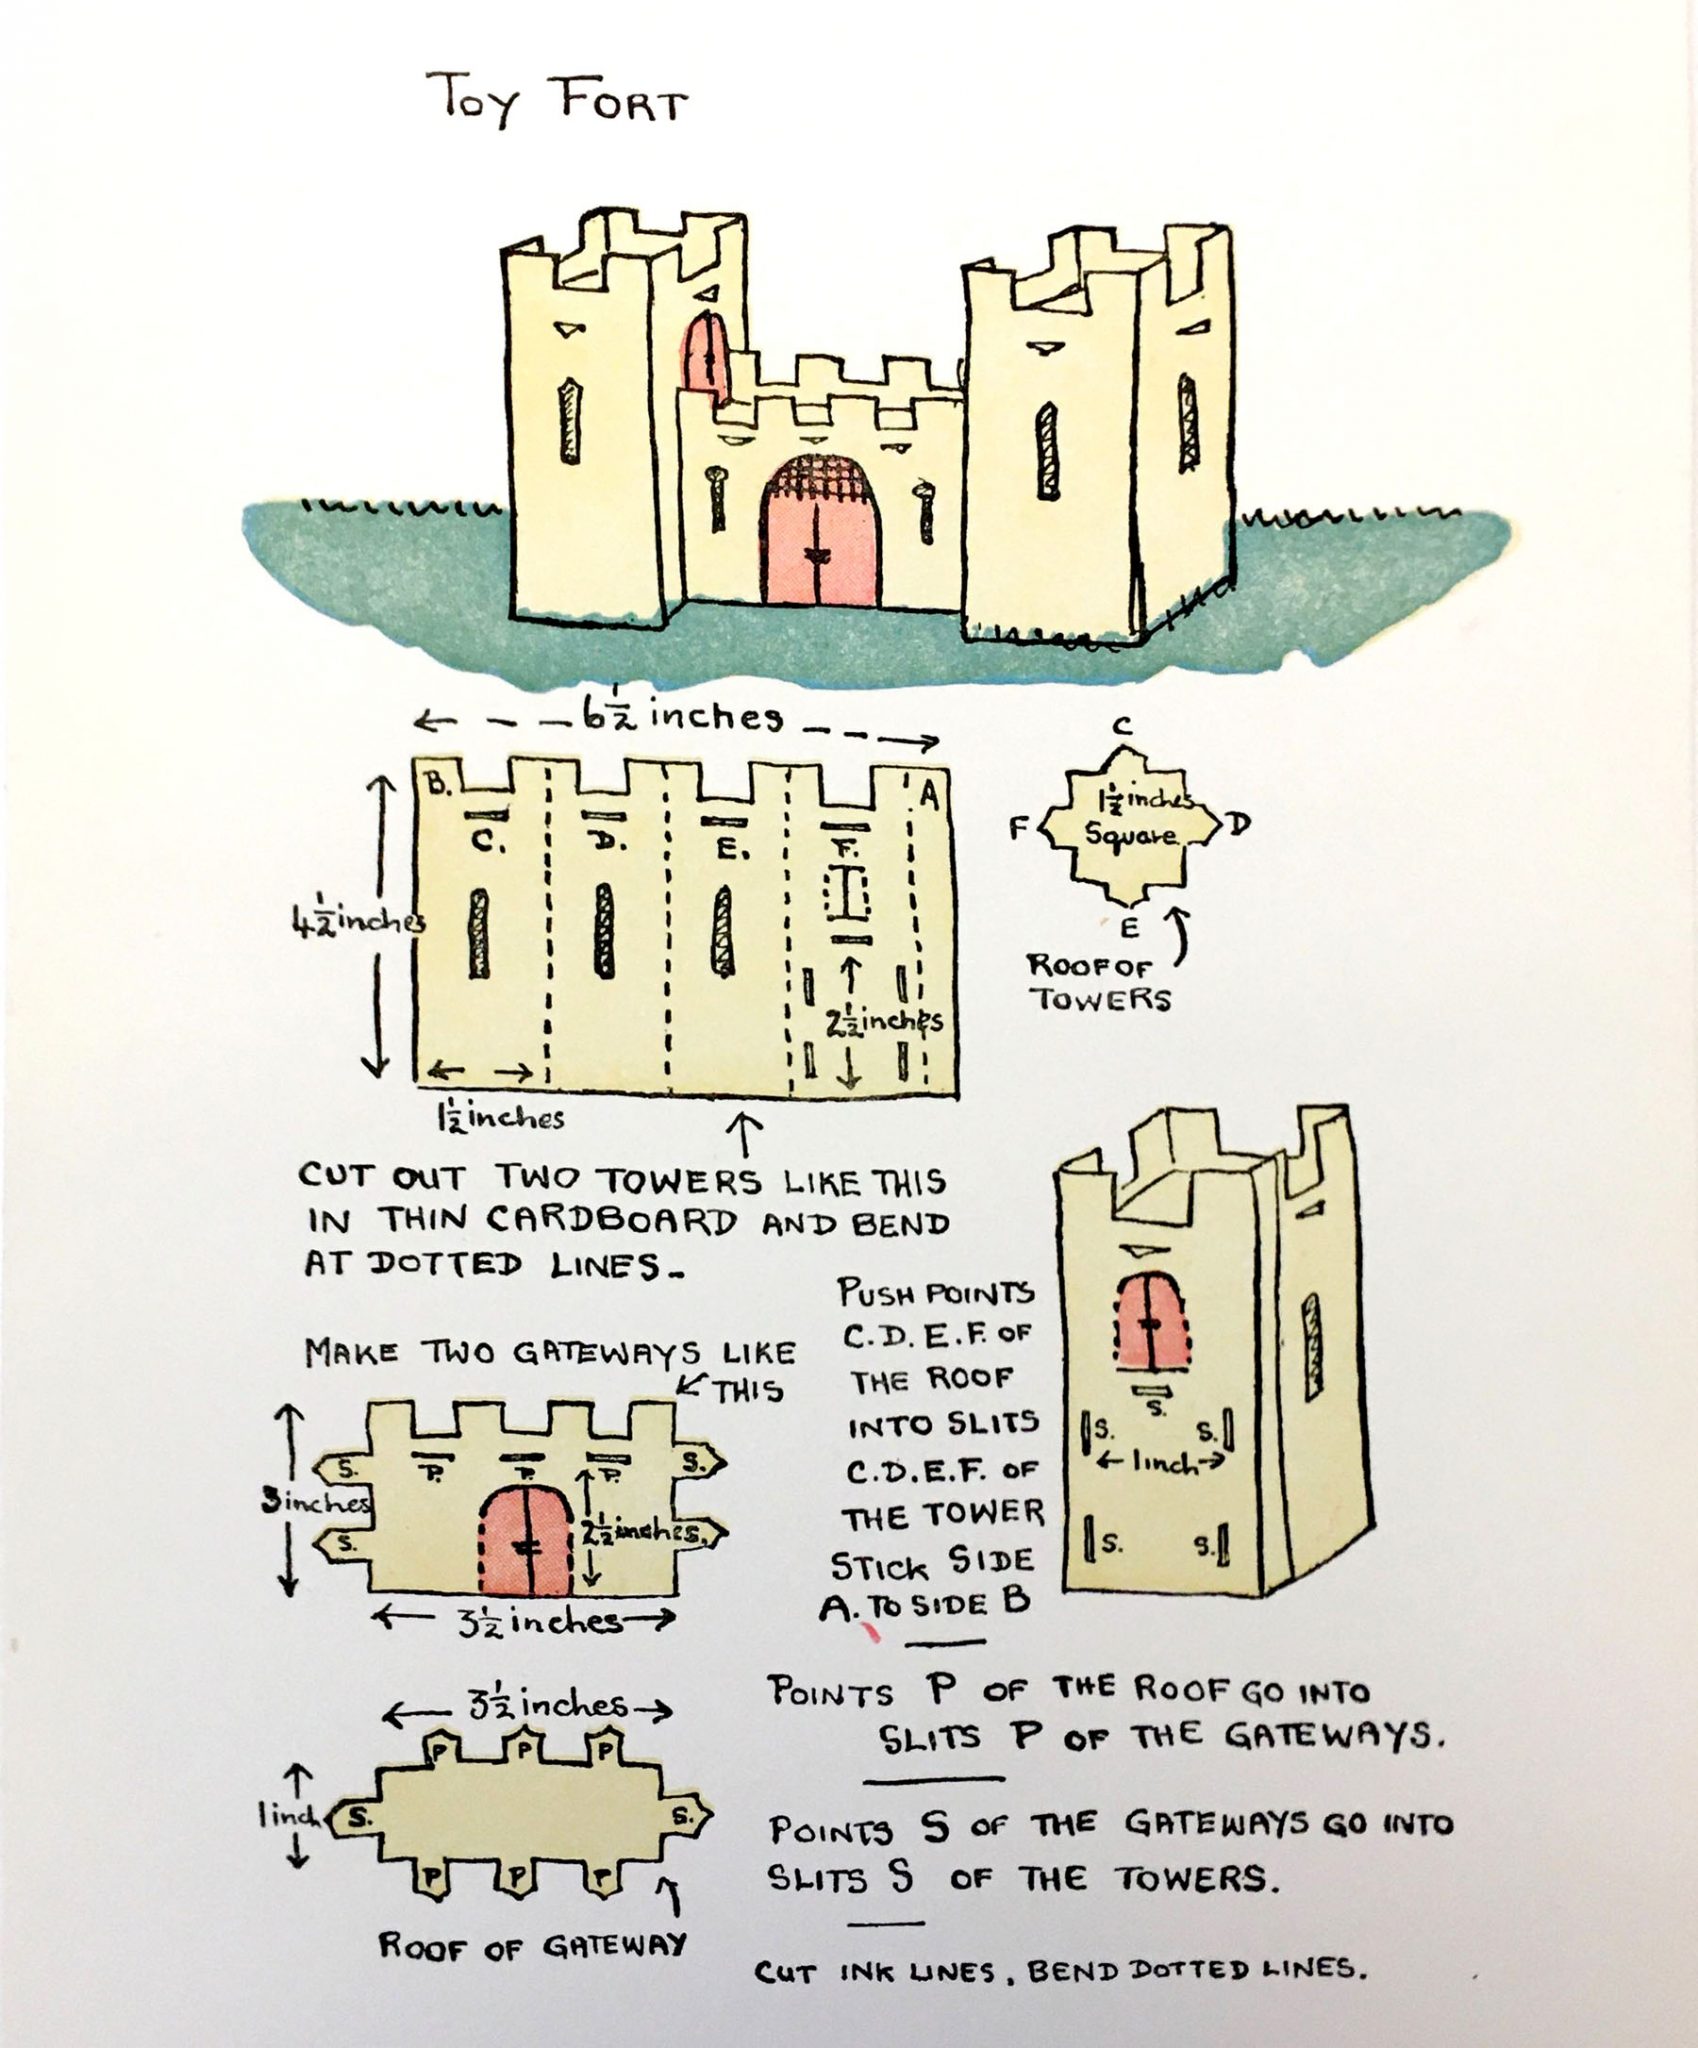 Toy Fort
6½ inches
B.
A
C.
D.
E.
F.
4½ inches
2½ inches
1½ inches
C
F
1½ inches
Square
D
E
ROOF OF
TOWERS
CUT OUT TWO TOWERS LIKE THIS
IN THIN CARDBOARD AND BEND
AT DOTTED LINES_
MAKE TWO GATEWAYS LIKE
THIS
S.
S.
P.
P.
P.
3 inches
2½ inches
S.
S.
3½ inches
PUSH POINTS
C.D.E.F. OF
THE ROOF
INTO SLITS
C.D.E.F. OF
THE TOWER
STICK SIDE
A. TO SIDE B
S.
S.
S.
1 inch
S.
S.
3½ inches
P
P
P
1 inch
S.
S.
P
P
P
ROOF OF GATEWAY
POINTS P OF THE ROOF GO INTO
SLITS P OF THE GATEWAYS.
POINTS S OF THE GATEWAYS GO INTO
SLITS S OF THE TOWERS.
CUT INK LINES, BEND DOTTED LINES.